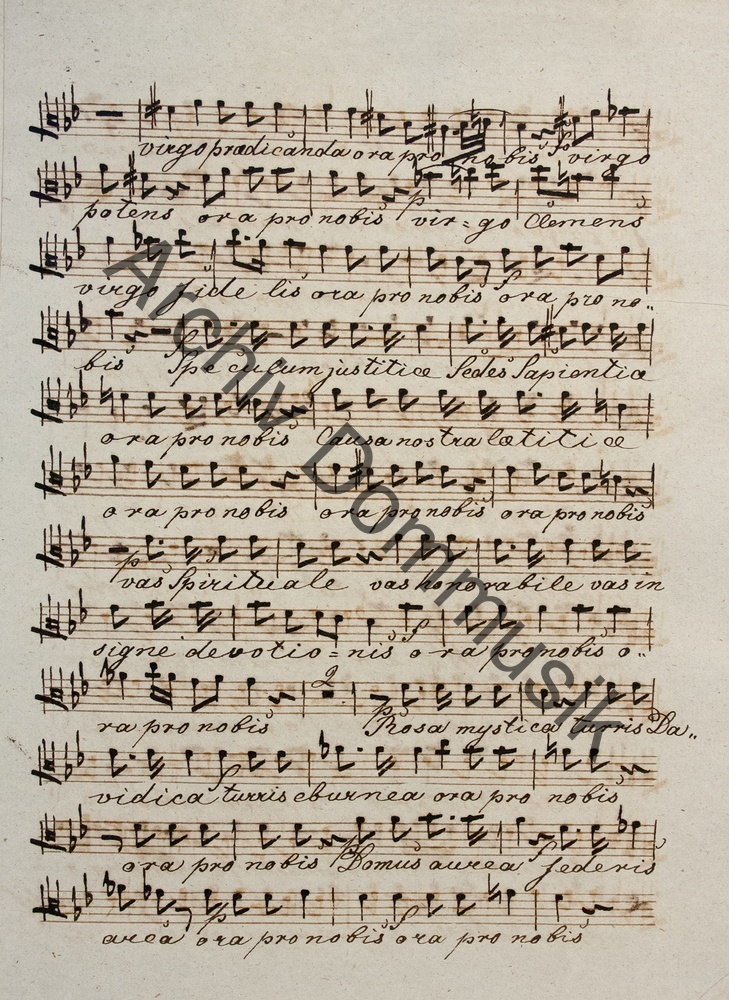 virgo prædicanda ora pro nobis virgo
potens ora pro nobis vir=go Clemens
virgo fide lis ora pro nobis ora pro no..
bis Spe culum justitiæ Sedes Sapientiæ
ora pro nobis Causa nostra lætitiæ
ora pro nobis ora pro nobis ora pro nobis
vas Spirituale vas honorabile vas in
signe devotio=nis o ra pro nobis o..
2
ra pro nobis Rosa mystica turris Da..
vidica turris eburnea ora pro nobis
ora pro nobis Domus aurea federis
arca ora pro nobis ora pro nobis
Archiv Dommusik